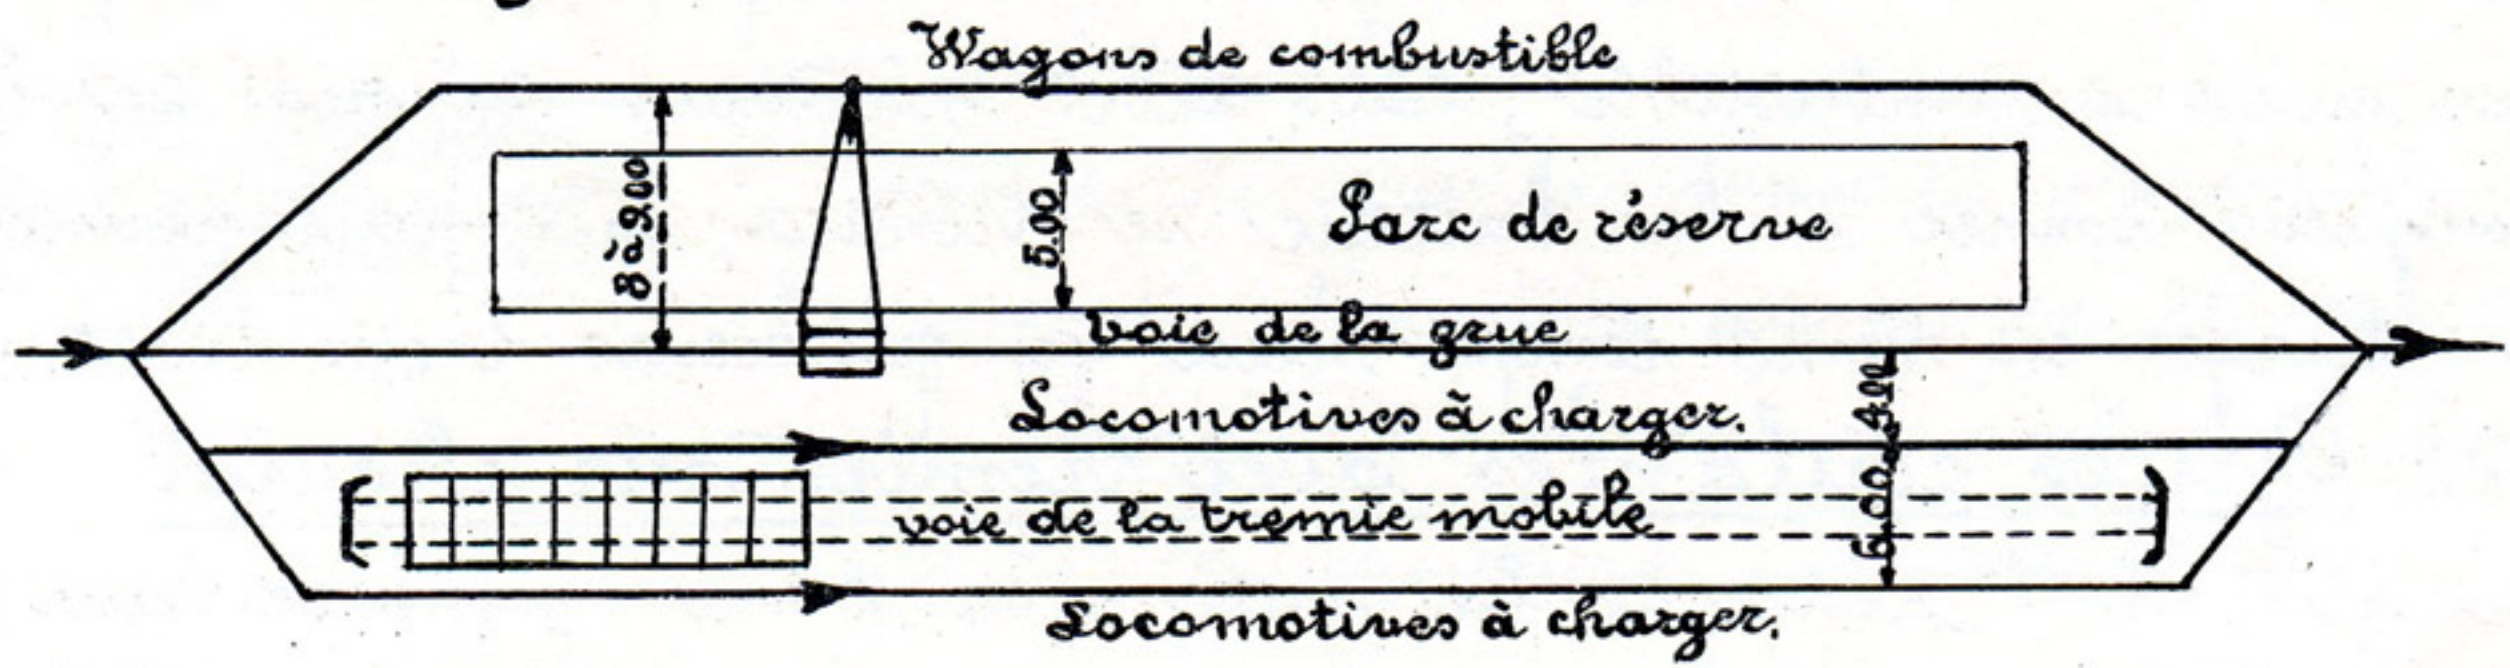 Wagons de combustible
8 à 9.00
5.00
Parc de réserve
voie de la grue
4.00
Locomotives à charger.
6.00
voie de la trémie mobile
Locomotives à charger.